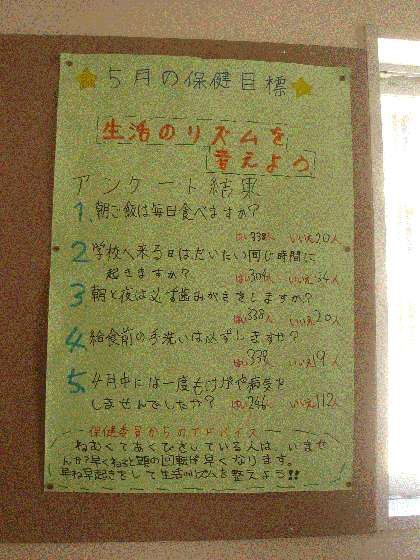 5月の保健目標
生活のリズムを
整えよう
アンケート結果
1、朝ご飯は毎日食べますか?
はい338人 いいえ20人
2、学校へ来る日はだいたい同じ時間に
起きますか?
はい304人 いいえ54人
3、朝と夜は必ず歯みがきをしますか?
はい338人 いいえ20人
4、給食前の手洗いは必ずしますか?
はい339人 いいえ19人
5、4月中には一度もけがや病気を
しませんでしたか? はい246人 いいえ112人
保健委員からのアドバイス
ねむくてあくびをしている人は、いませ
んか?早くねると頭の回転が早くなります。
早ね早起きをして生活のリズムを整えよう!!